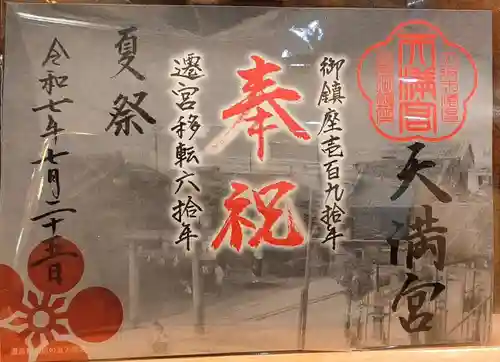 天満宮
天満宮
御鎮座壱百九拾年
奉祝
遷宮移転六拾年
夏祭
令和七年七月二十五日